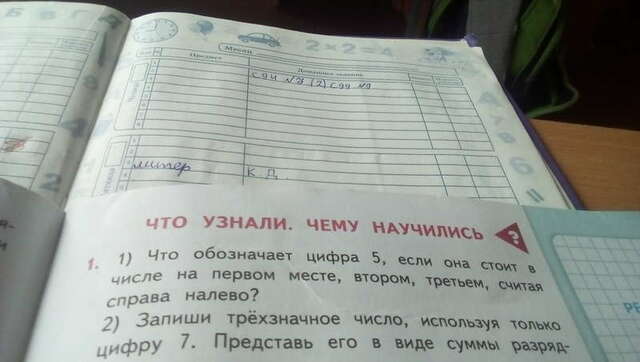 2×2=4
Месяц
Предмет
Домашнее задание
литер
к. д.
ЧТО УЗНАЛИ. ЧЕМУ НАУЧИЛИСЬ
?
1. 1) Что обозначает цифра 5, если она стоит в
числе на первом месте, втором, третьем, считая
справа налево?
2) Запиши трёхзначное число, используя только
цифру 7. Представь его в виде суммы разряд-